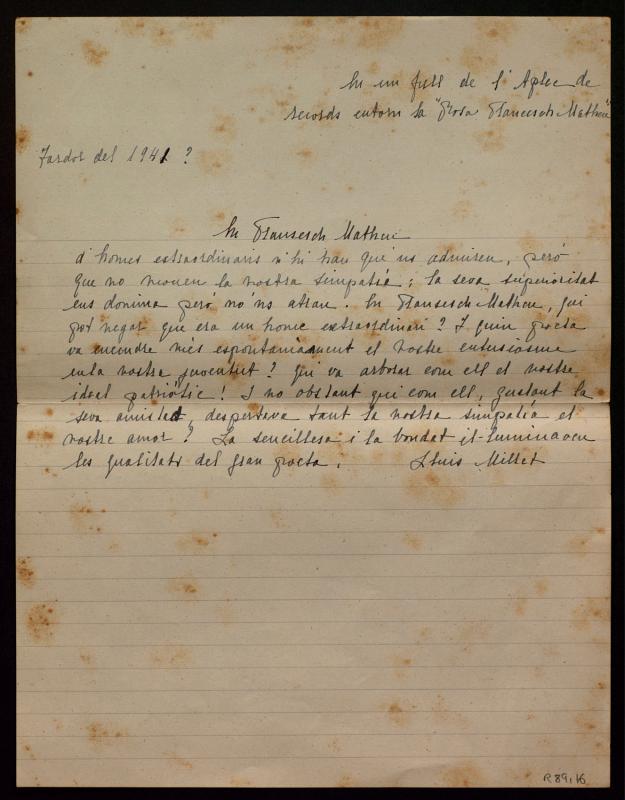 En un full de l'Aplec de
records entorn la "Rosa Francesch Matheu"
Tardor del 1941 ?
En Francesch Matheu
d'homes extraordinaris n'hi han que'ns admiren, peró
que no mouen la nostra simpatía; la seva superioritat
ens domina peró no'ns atrau. En Francesch Matheu, qui
pot negar que era un home extraordinari? I quin poeta
va encendre més espontaniament el nostre entusiasme
en la nostra joventut? Qui va arborar com ell el nostre
ideal patriòtic! I no obstant qui com ell, gustant la
seva amistat, despertava tant la nostra simpatia el
nostre amor? La sencillesa i la bondat il·luminaven
les qualitats del gran poeta. Lluis Millet
R 89, 16